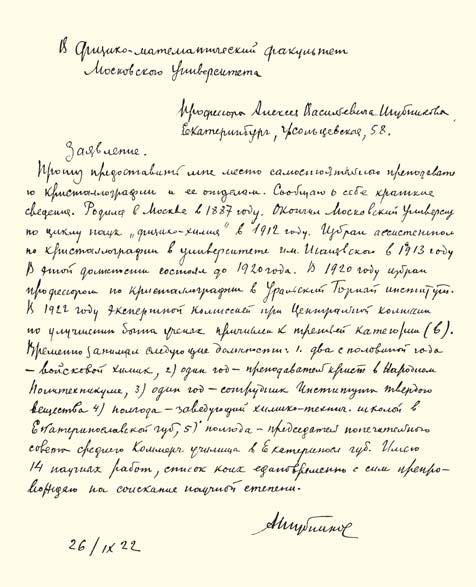 В Физико-математический факультет
Московского Университета
Профессора Алексея Васильевича Шубникова
Екатеринбург, 58.
Заявление.
Прошу предоставить мне место самостоятельного преподавате
ю кристаллографии и ее отделам. Сообщаю о себе краткие
сведения. Родился в Москве в 1887 году. Окончил Московский Универси
по циклу наук „физико-химия" в 1912 году. Избран ассистентом
по кристаллографии в университете им. Шанявского в 1913 году
В этой должности состоял до 1920 года. В 1920 году избран
профессором по кристаллографии в Уральский Горный институт.
В 1922 году Экспертной Комиссией при Центральной комиссии
по улучшению быта ученых причислен к третьей категории (в).
Временно занимал следующие должности: 1. два с половиной года
– войсковой химик, 2) один год – преподавателя крист в Народном
Политехникуме, 3) один год – сотрудник Института твердого
вещества 4) полгода – заведующий химико-технич. школой в
Екатеринославской губ, 5) полгода – председателя попечательного
совета среднего Коммерч училища в Екатериносл губ. Имею
14 научных работ, список коих единовременно с сим препро-
вождаю на соискание научной степени.
АШубников
26/IX 22